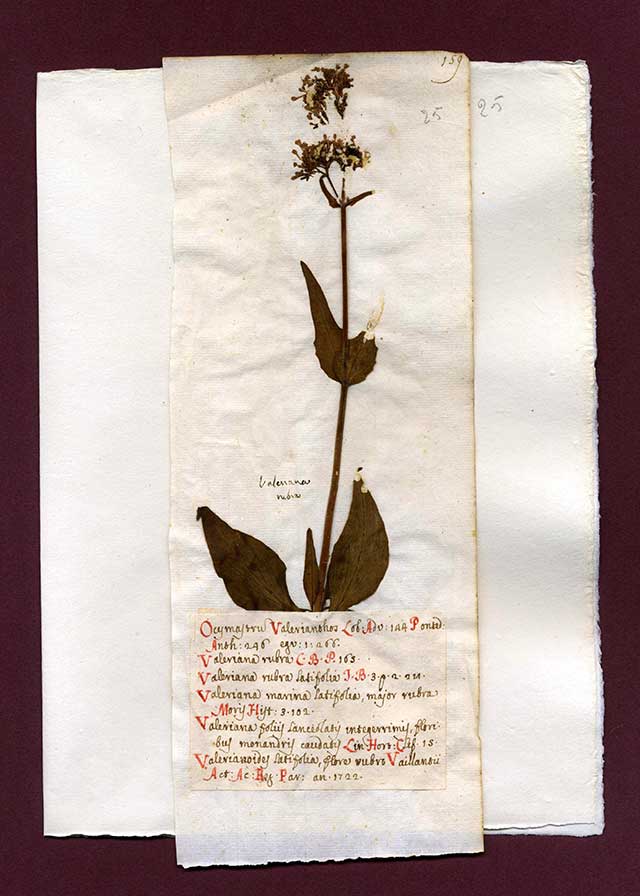 159
25 25
Valeriana
rubra
Ocymastrū Valerianthos Lob: Adv: 144 Ponted:
Anth: 246 1: 266.
Valeriana rubra C. B. P. 165.
Valeriana rubra latifolia I. B. 3. p. 2. 211.
Valeriana marina latifolia, major rubra
Moris Hist: 3. 102.
Valeriana foliis lanceolatis integerrimis, flori-
bus monandris caudatis Lin Hort: Clif. 15.
Valerianoides latifolia, flore rubro Vaillantii
Act: Ac: Reg. Par: an. 1722.